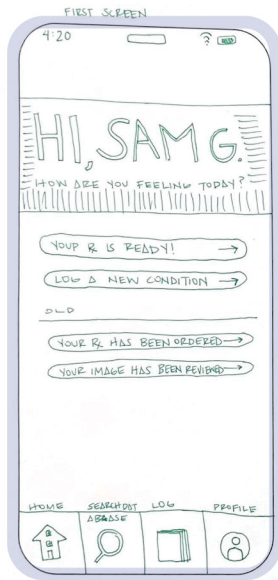 FIRST SCREEN
4:20
HI, SAM G.
HOW ARE YOU FEELING TODAY?
YOUP RX IS READY!
LOG A NEW CONDITION
OLD
YOUR RX HAS BEEN ORDERED
YOUR IMAGE HAS BEEN REVIEWED
HOME SEARCH DAT LOG PROFILE
ABASE